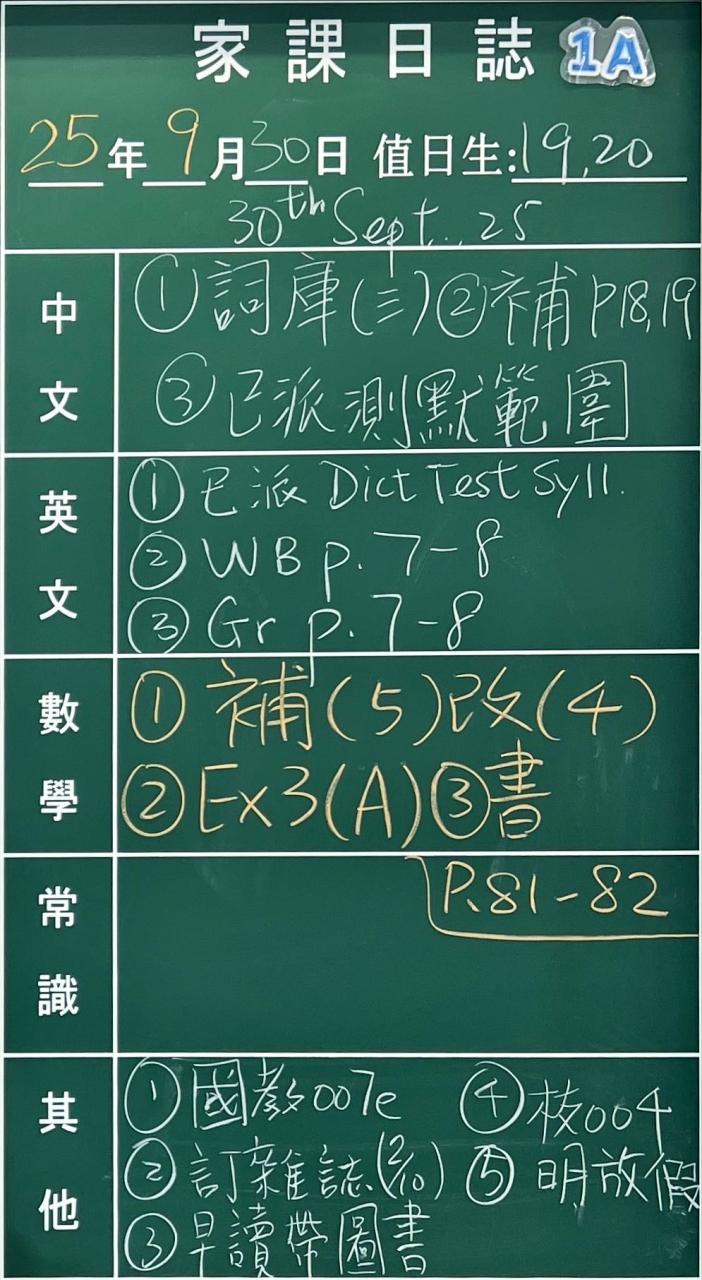 家課日誌 1A
25年9月30日 值日生:19,20
30th Sept. 25
中文
①詞庫(三)②補P18,19
③已派測默範圍
英文
①已派 Dict Test Syll.
②WB p. 7-8
③Gr p. 7-8
數學
①補(5)改(4)
②Ex3(A)③書
P.81-82
常識
其他
①國教007e
②訂雜誌(2/10)
③早讀帶圖書
④校004
⑤明放假